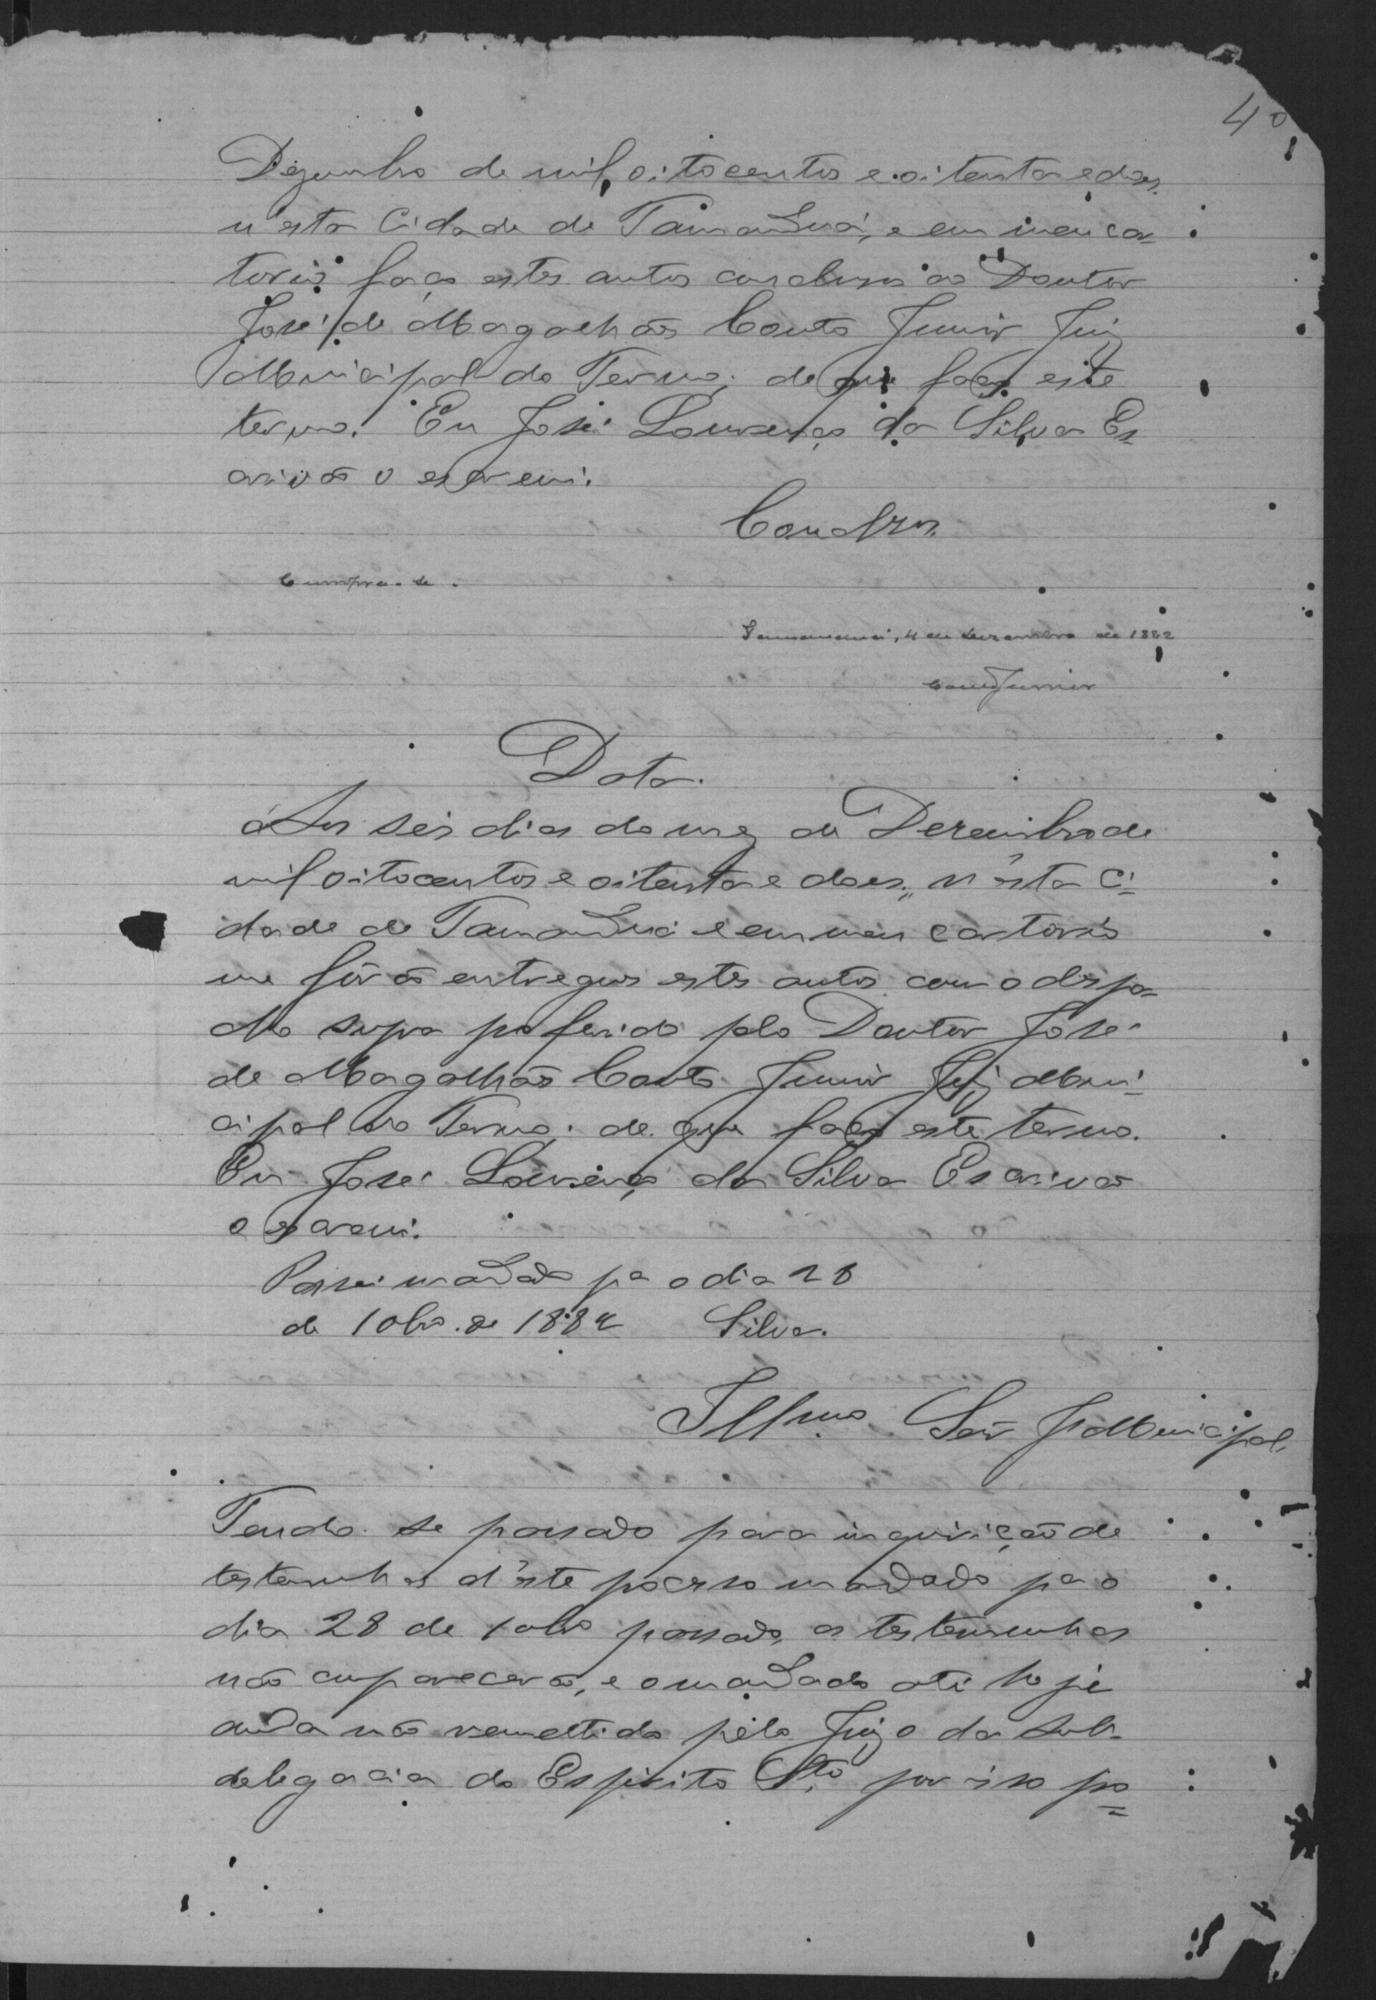 40
Dezembro de mil oitocentos e oitenta e dois.
n'esta Cidade de Tamanduá, e em meu car-
torio faço estes autos conclusos ao Doutor
José de Magalhães Couto Junior Juiz
Municipal do Termo; de que faço este
termo. Eu José Lourenço da Silva Es-
crivão o escrevi.
Conclzos.
Cumpra-se.
Tamanduá, 4 de dezembro de 1882
Couto Junior
Data.
Aos seis dias do mez de Dezembro de
mil oitocentos e oitenta e does, n'esta Ci-
dade de Tamanduá e em meu cartorio
me fôrão entregues estes autos com o dispa-
cho supra proferido pelo Doutor José
de Magalhães Couto Junior Juiz Muni-
cipal do Termo; de que faço este termo.
Eu José Lourenço da Silva Escrivão
o escrevi.
Passei mandado pa o dia 28
de 10bro de 1882 Silva.
Illmo. Senr Juiz Municipal,
Tendo se passado para inquirição de
testemunhas d'este processo mandado pa o
dia 28 de 10bro passado, as testemunhas
não cuparecerão, e o mandado até hoje
ainda não remettido pelo Juizo da Sub-
delegacia do Espirito Sto. por isso po-